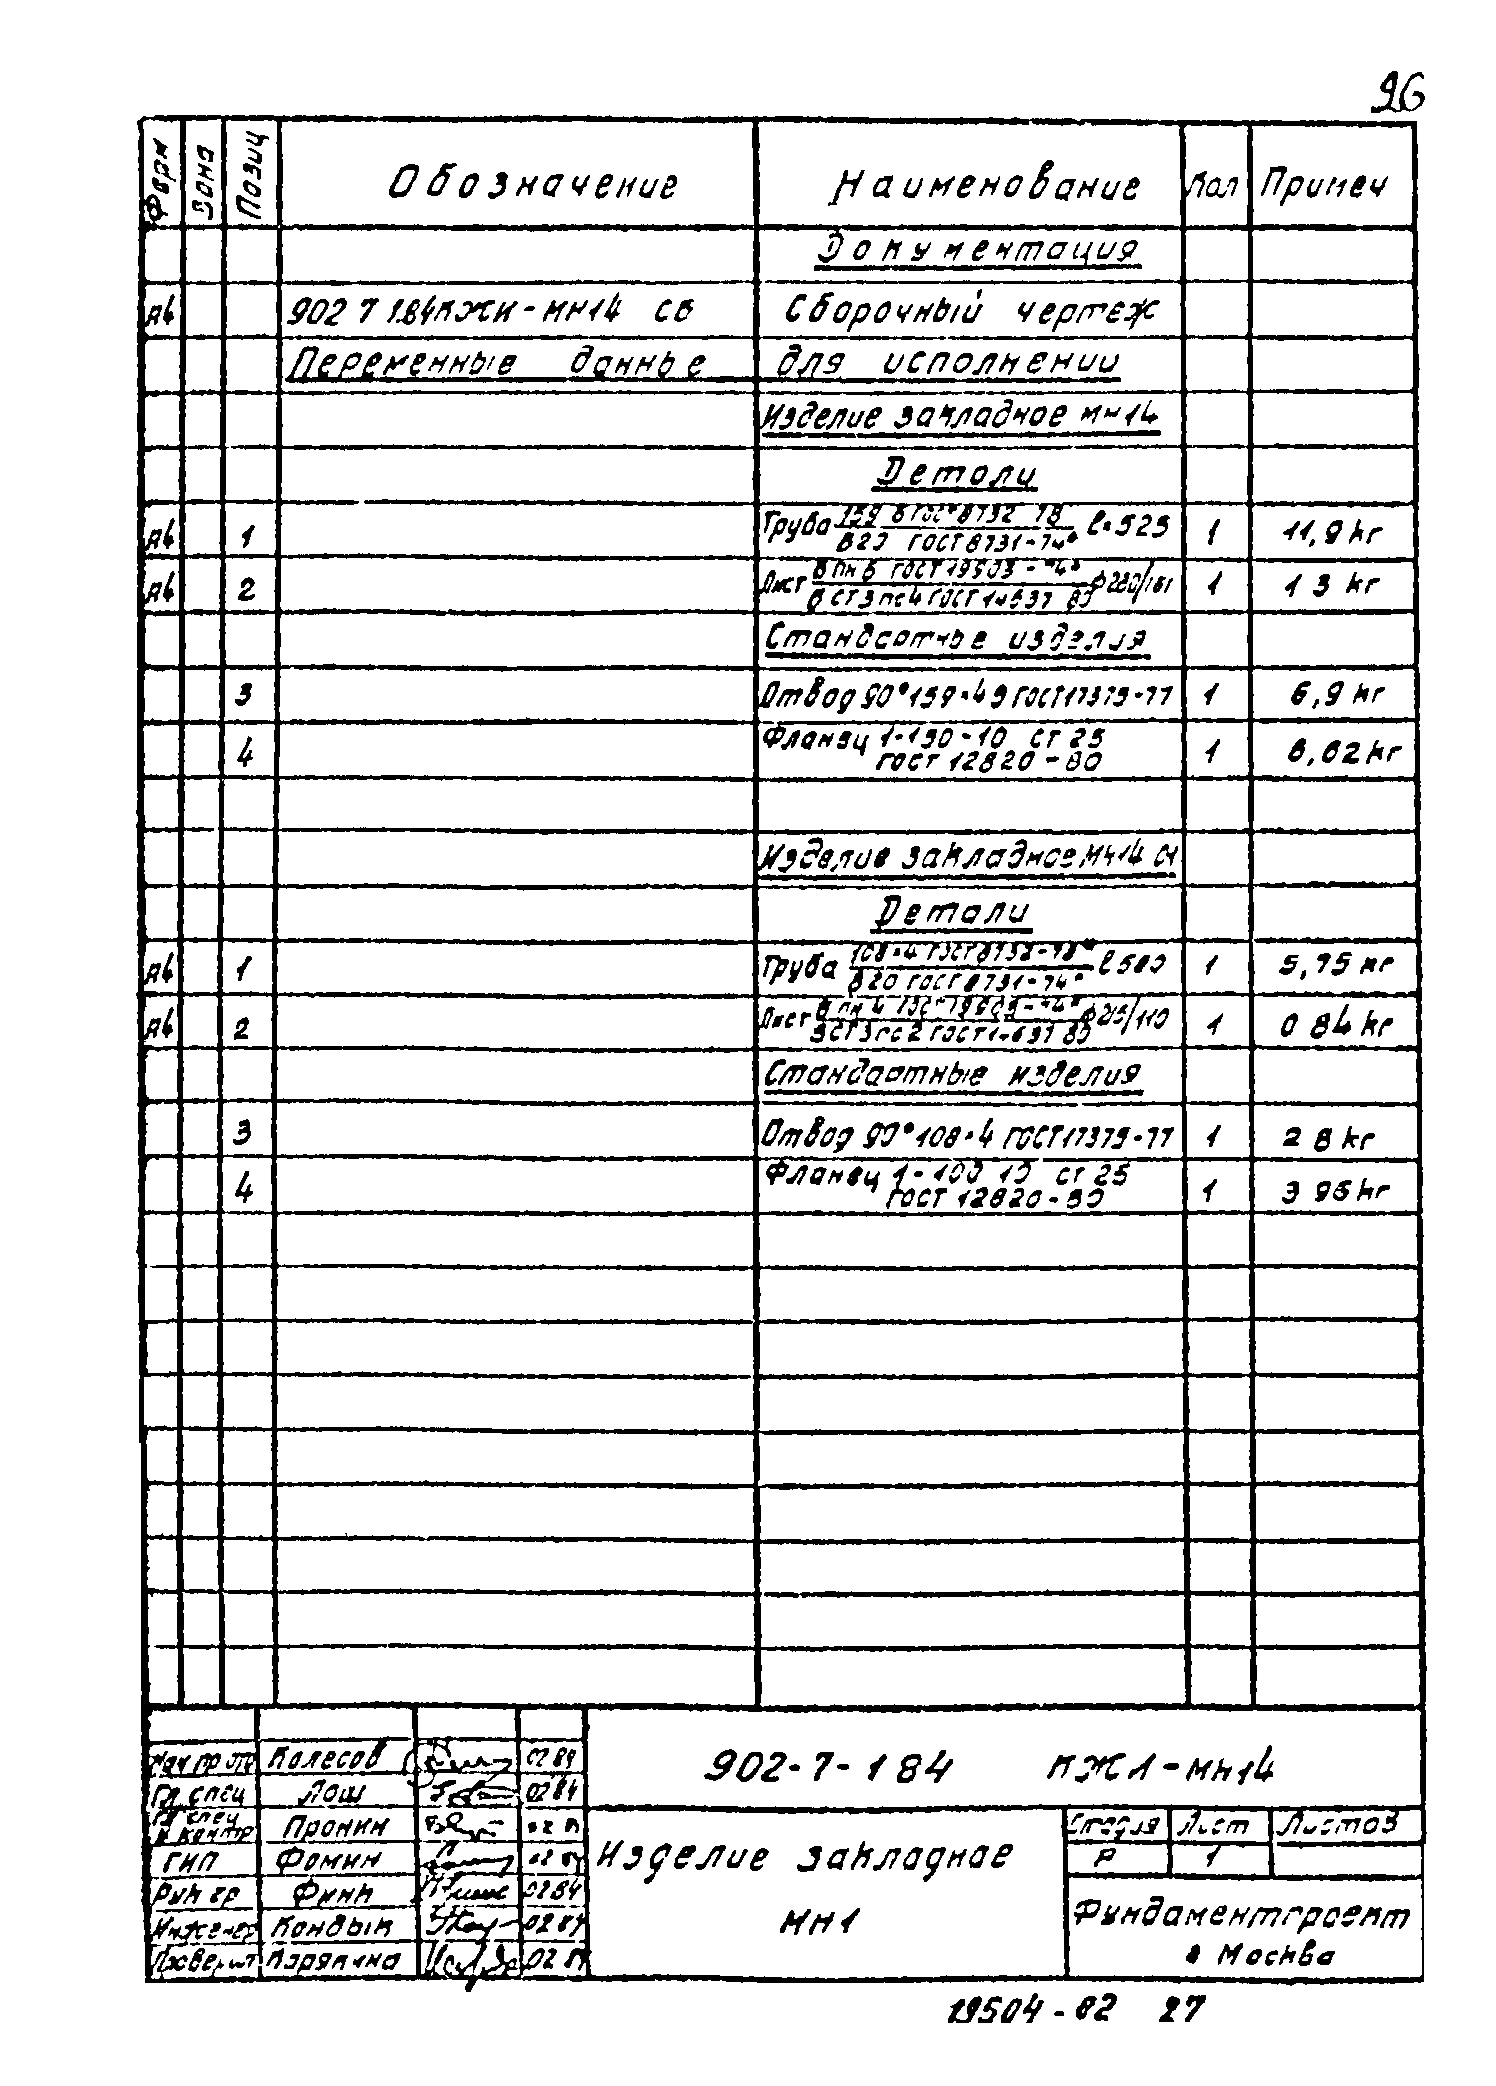 26
Форм Зона Позиц Обозначение Наименование Кол Примеч
Документация
А4 902 7 1.84КЖИ-МН14 СБ Сборочный чертеж
Переменные данные для исполнении
Изделие закладное МН14
Детали
А4 1 Труба 159 6 ГОСТ 8732 78 / В20 ГОСТ 8731-74* l=525 1 11,9 кг
А4 2 Лист Б ПН 6 ГОСТ 19903-74* / В СТ3 пс4 ГОСТ 14637 80 ф280/161 1 1 3 кг
Стандартные изделия
3 Отвод 90° 159×4 5 ГОСТ 17375-77 1 6,9 кг
4 Фланец 1-150-10 СТ 25 1 6,62 кг
ГОСТ 12820-80
Изделие закладное МН14 01
Детали
А4 1 Труба 108×4 ГОСТ 8732-78* / В20 ГОСТ 8731-74* l 580 1 5,75 кг
А4 2 Лист Б ПН 4 ГОСТ 19903-74* / ВСТ3пс2 ГОСТ 14637 80 ф215/110 1 0 84 кг
Стандартные изделия
3 Отвод 90° 108×4 ГОСТ 17375-77 1 2 8 кг
4 Фланец 1-100 10 СТ 25 1 3 96 кг
ГОСТ 12820-80
Нач пр от Колесов 02 84
Гл спец Лош 02 84
Гл спец
н контр Пронин
ГИП Фомин
Рук гр Финк 02 84
Инженер Кондык 02 84
Проверил Корякина 02 84
902-7-1 84 КЖ1-МН14
Изделие закладное
МН1
Стадия Лист Листов
Р 1
Фундаментпроект
г Москва
19504-02 27